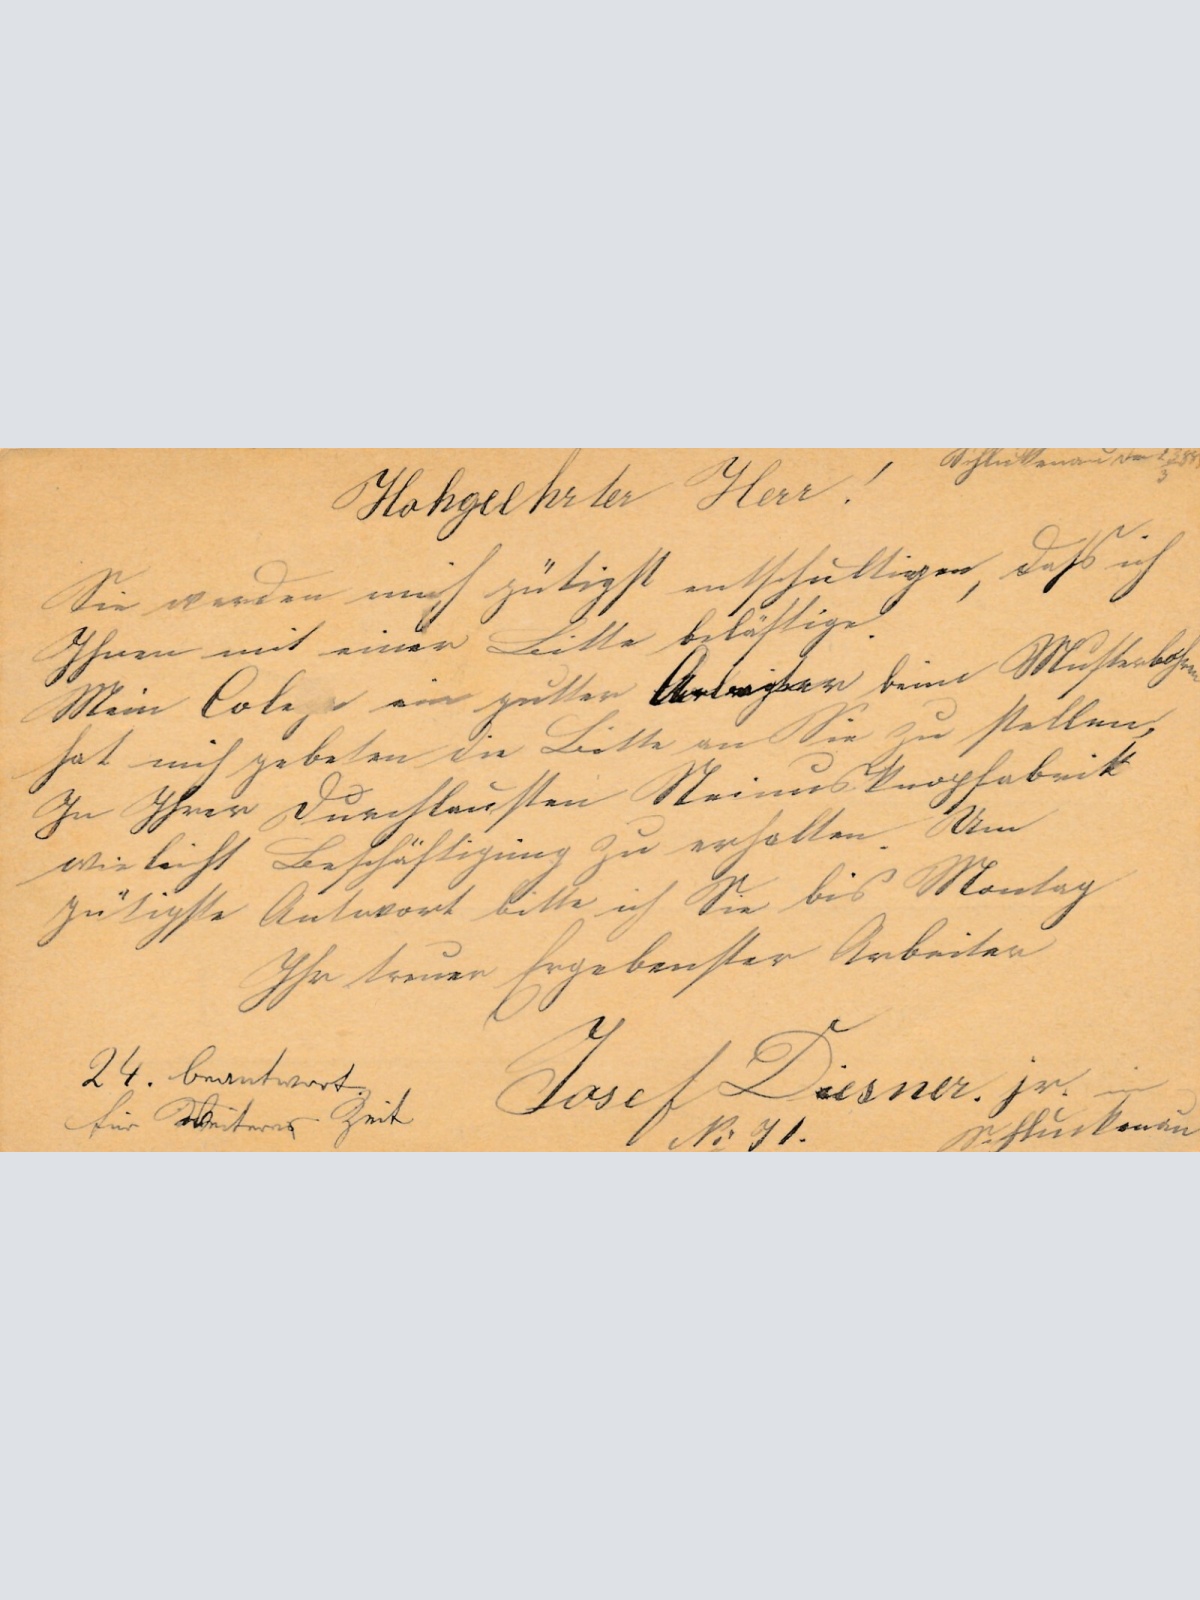 Schluckenau den
Hohgeehrter Herr!
Sie werden mich gütigst entschultigen, daß ich
Ihnen mit einer Bitte beläßtige.
Mein Colege ein gutter Arbeiter beim Musterbohren
hat mich gebeten die Bitte an Sie zu stellen,
In Ihrer Durchlausten Steinusknopfabrik
vieleicht Beschäftigung zu erhalten. Um
gütigste Antwort bitte ich Sie bis Montag
Ihr treuer Ergebenster Arbeiter
Josef Diesner. jr. in
No 71. Schluckenau
24. beantwort.
für Weiteres Zeit